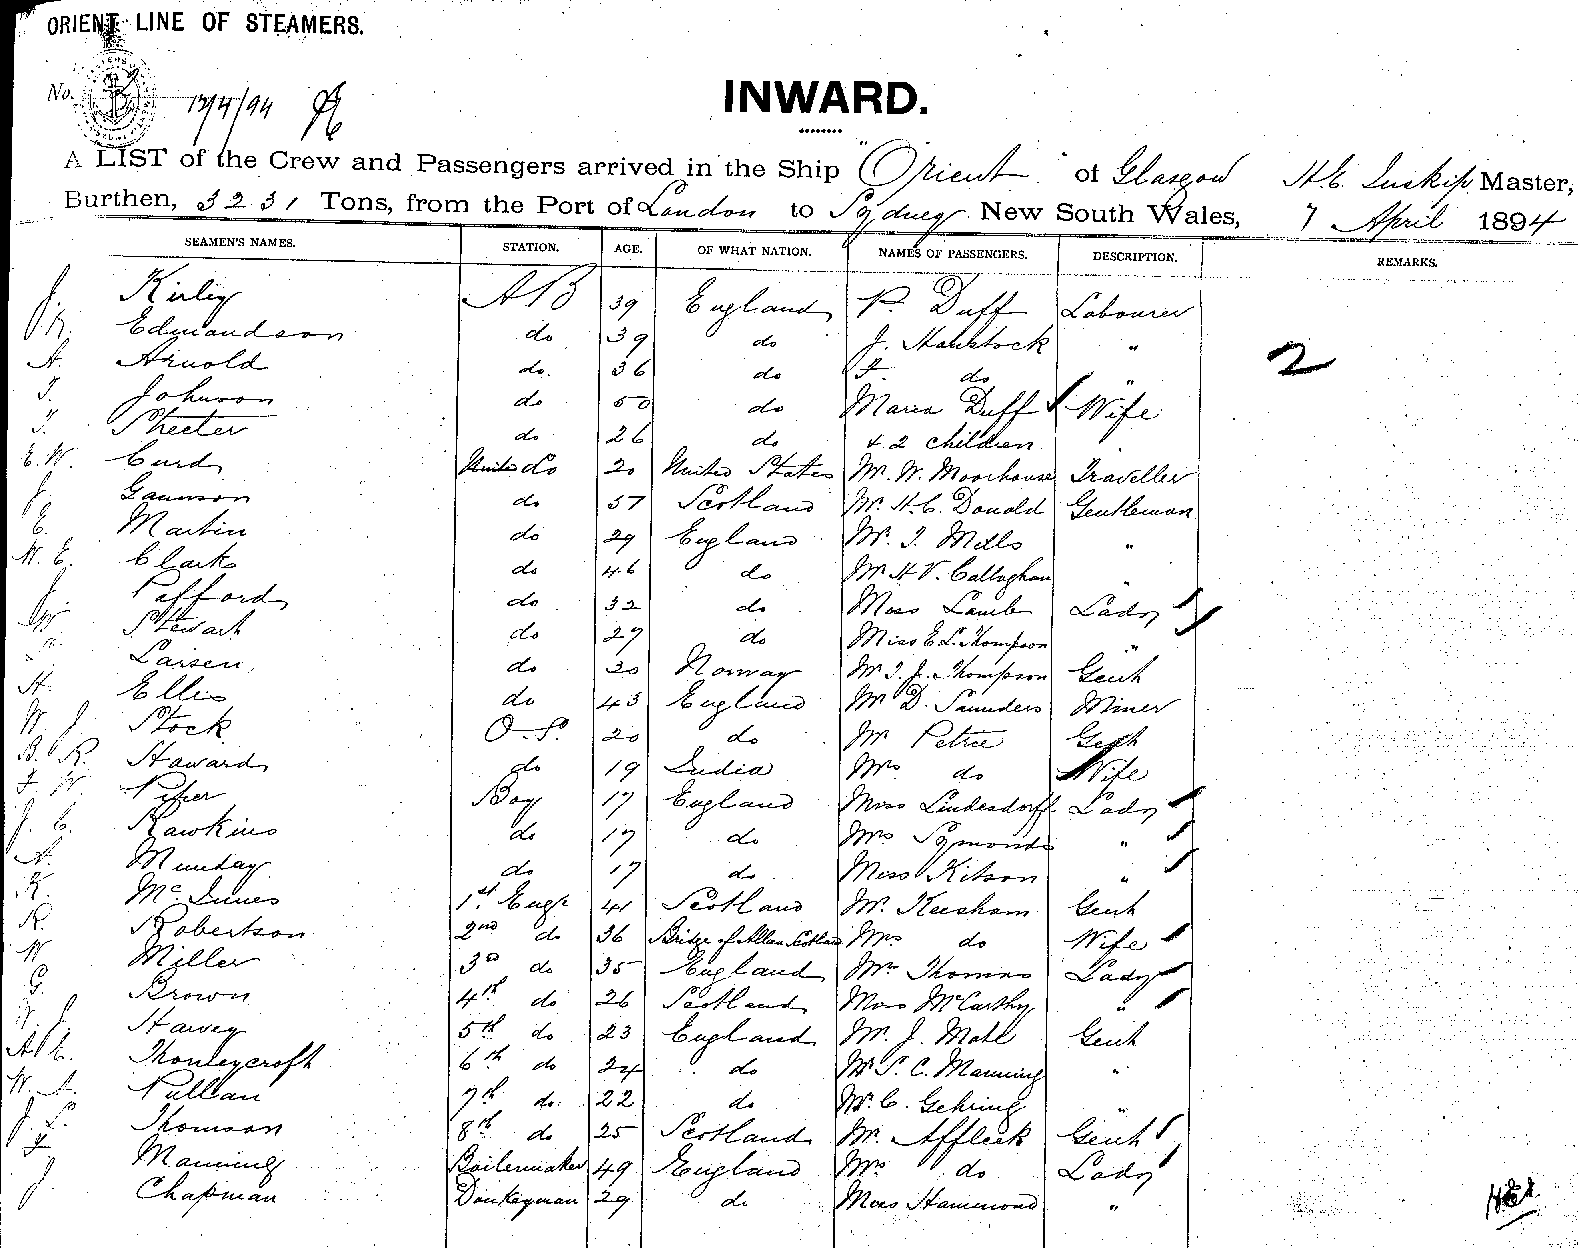 ORIENT LINE OF STEAMERS.
No. 13/4/94
INWARD.
A LIST of the Crew and Passengers arrived in the Ship "Orient" of Glasgow H.E. Inskip Master,
Burthen, 3231 Tons, from the Port of London to Sydney New South Wales, 7 April 1894
SEAMEN'S NAMES. STATION. AGE. OF WHAT NATION. NAMES OF PASSENGERS. DESCRIPTION. REMARKS.
J. Kirley AB 39 England P. Duff Labourer
Edmundson do 39 do J. Hawkstock "
A. Arnold do. 36 do F. do " 2
T. Johnson do 50 do Maria Duff Wife
T. Streeter do 26 do + 2 children
E.W. Curd do 20 United States Mr. W. Moorhouse Traveller
J. Gannson do 57 Scotland Mr. H.C. Donald Gentleman
E. Martin do 29 England Mr. T. Mills "
W.E. Clark do 46 do Mr H V. Callaghan "
J. Pafford do 32 do Miss Lamb Lady
W. Stewart do 27 do Miss E L. Thompson "
Larsen do 30 Norway Mr. T. J. Thompson Gent
H. Ellis do 43 England Mr D. Saunders Miner
W J. Stock O.S. 20 do Mr Petrie Gent
B. R. Howard do 19 India Mrs do Wife
F W. Piper Boy 17 England Miss Lindesdorff Lady
J. C. Hawkins do 17 do Mrs Symonds "
A. Munday do 17 do Miss Kitson "
K. McInnes 1st Engr 41 Scotland Mr. Keesham Gent
R. Robertson 2nd do 36 Bridge of Allan Scotland Mrs do Wife
W Miller 3rd do 35 England Mrs Thomas Lady
G. Brown 4th do 26 Scotland Miss McCarthy "
Harvey 5th do 23 England Mr. J. Mahl Gent
A E. Thorneycroft 6th do 24 do Mr S. C. Manning "
W. A. Pullan 7th do. 22 do Mr. C. Gehring "
J. L. Thomson 8th do 25 Scotland Mr. Affleck Gent
F Manning Boilermaker 49 England Mrs do Lady
J. Chapman Donkeyman 29 do Miss Hammond "